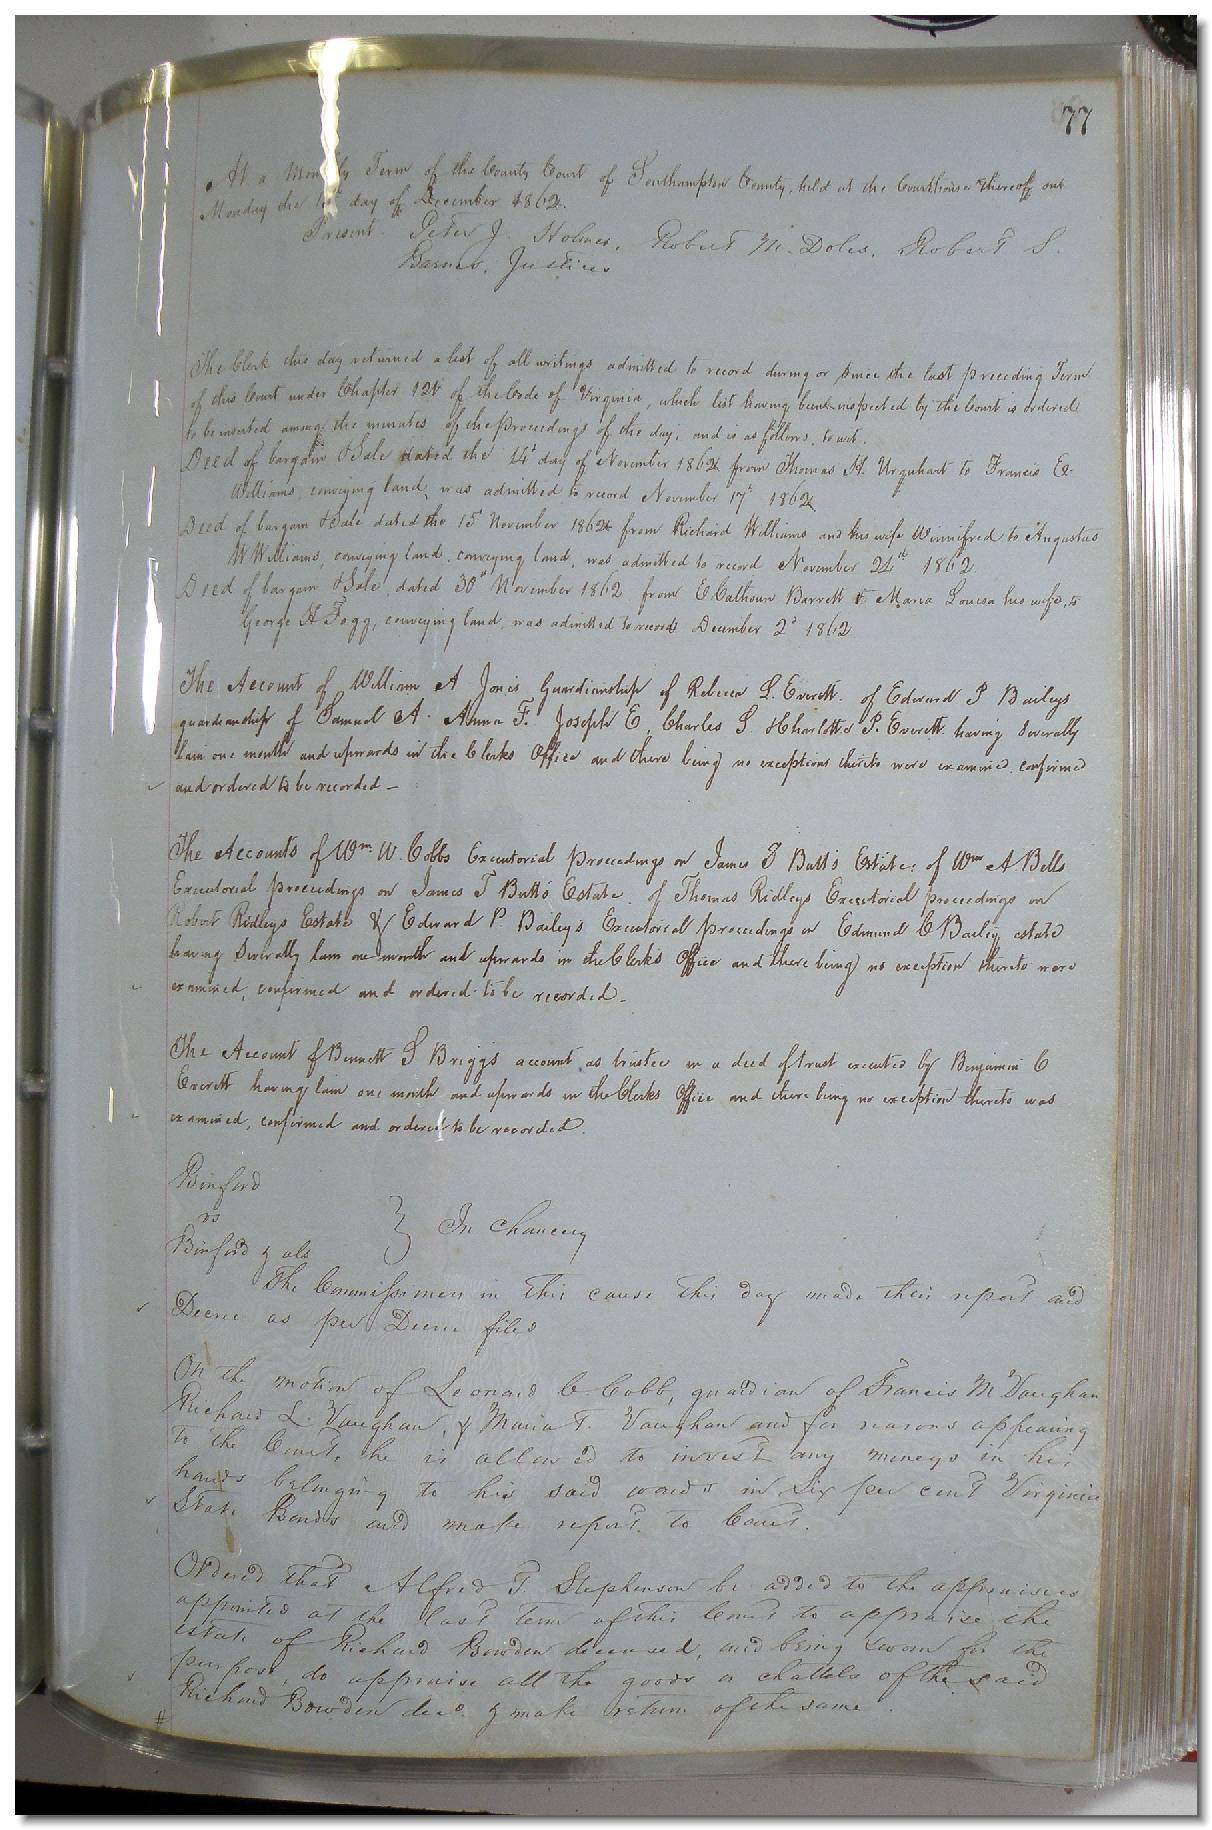 77
At a Monthly Term of the County Court of Southampton County, held at the Courthouse thereof on
Monday the day of December 1862.
Present. Peter J. Holmes, Robert M. Doles, Robert S.
Barnes, Justices
The Clerk this day returned a list of all writings admitted to record during or since the last preceding Term
of this Court under Chapter 121 of the Code of Virginia, which list having been inspected by the Court is ordered
to be inserted among the minutes of the proceedings of the day, and is as follows, to wit.
Deed of bargain & Sale dated the 14th day of November 1862 from Thomas H. Urquhart to Francis E.
Williams, conveying land, was admitted to record November 17th 1862
Deed of bargain & Sale dated the 15 November 1862 from Richard Williams and his wife Winnifred to Augustus
W Williams, conveying land, conveying land, was admitted to record November 24th 1862.
Deed of bargain & Sale, dated 30th November 1862 from E Calhoun Barrett & Maria Louisa his wife, to
George H Fogg, conveying land, was admitted to record December 2d 1862
The Account of William A Jones Guardianship of Rebecca L. Everett. of Edward P Baileys
guardianship of Samuel A. Anna F. Joseph E, Charles S. & Charlotte P. Everett having Severally
lain one month and upwards in the Clerks Office and there being no exceptions thereto were examined, confirmed
and ordered to be recorded –
The Accounts of Wm. W. Cobbs Executorial Proceedings on James T Butts Estate: of Wm A. Bells
Executorial proceedings on James T Butts Estate. of Thomas Ridleys Executorial proceedings on
Robert Ridleys Estate & of Edward P Bailey's Executorial proceedings on Edmund C Bailey estate
having Severally lain one month and upwards in the Clerks Office and there being no exception thereto were
examined, confirmed and ordered to be recorded –
The Account of Bennett S Briggs account as trustee in a deed of trust executed by Benjamin C
Everett having lain one month and upwards in the Clerks Office and there being no exception thereto was
examined, confirmed and ordered to be recorded.
Binford
vs
Binford & als } In Chancery
The Commissioners in this cause this day made their report and
Decree as per Decree filed
On the motion of Leonard C Cobb, guardian of Francis M Vaughan
Richard L. Vaughan, & Maria T. Vaughan and for reasons appearing
to the Court, he is allowed to invest any moneys in his
hands belonging to his said wards in Six per cent Virginia
State Bonds and make report to Court.
Ordered that Alfred T. Stephenson be added to the appraisers
appointed at the last term of this Court to appraise the
estate of Richard Bowden deceased, and being sworn for the
purpose, do appraise all the goods & chattels of the said
Richard Bowden decd. & make return of the same.
#